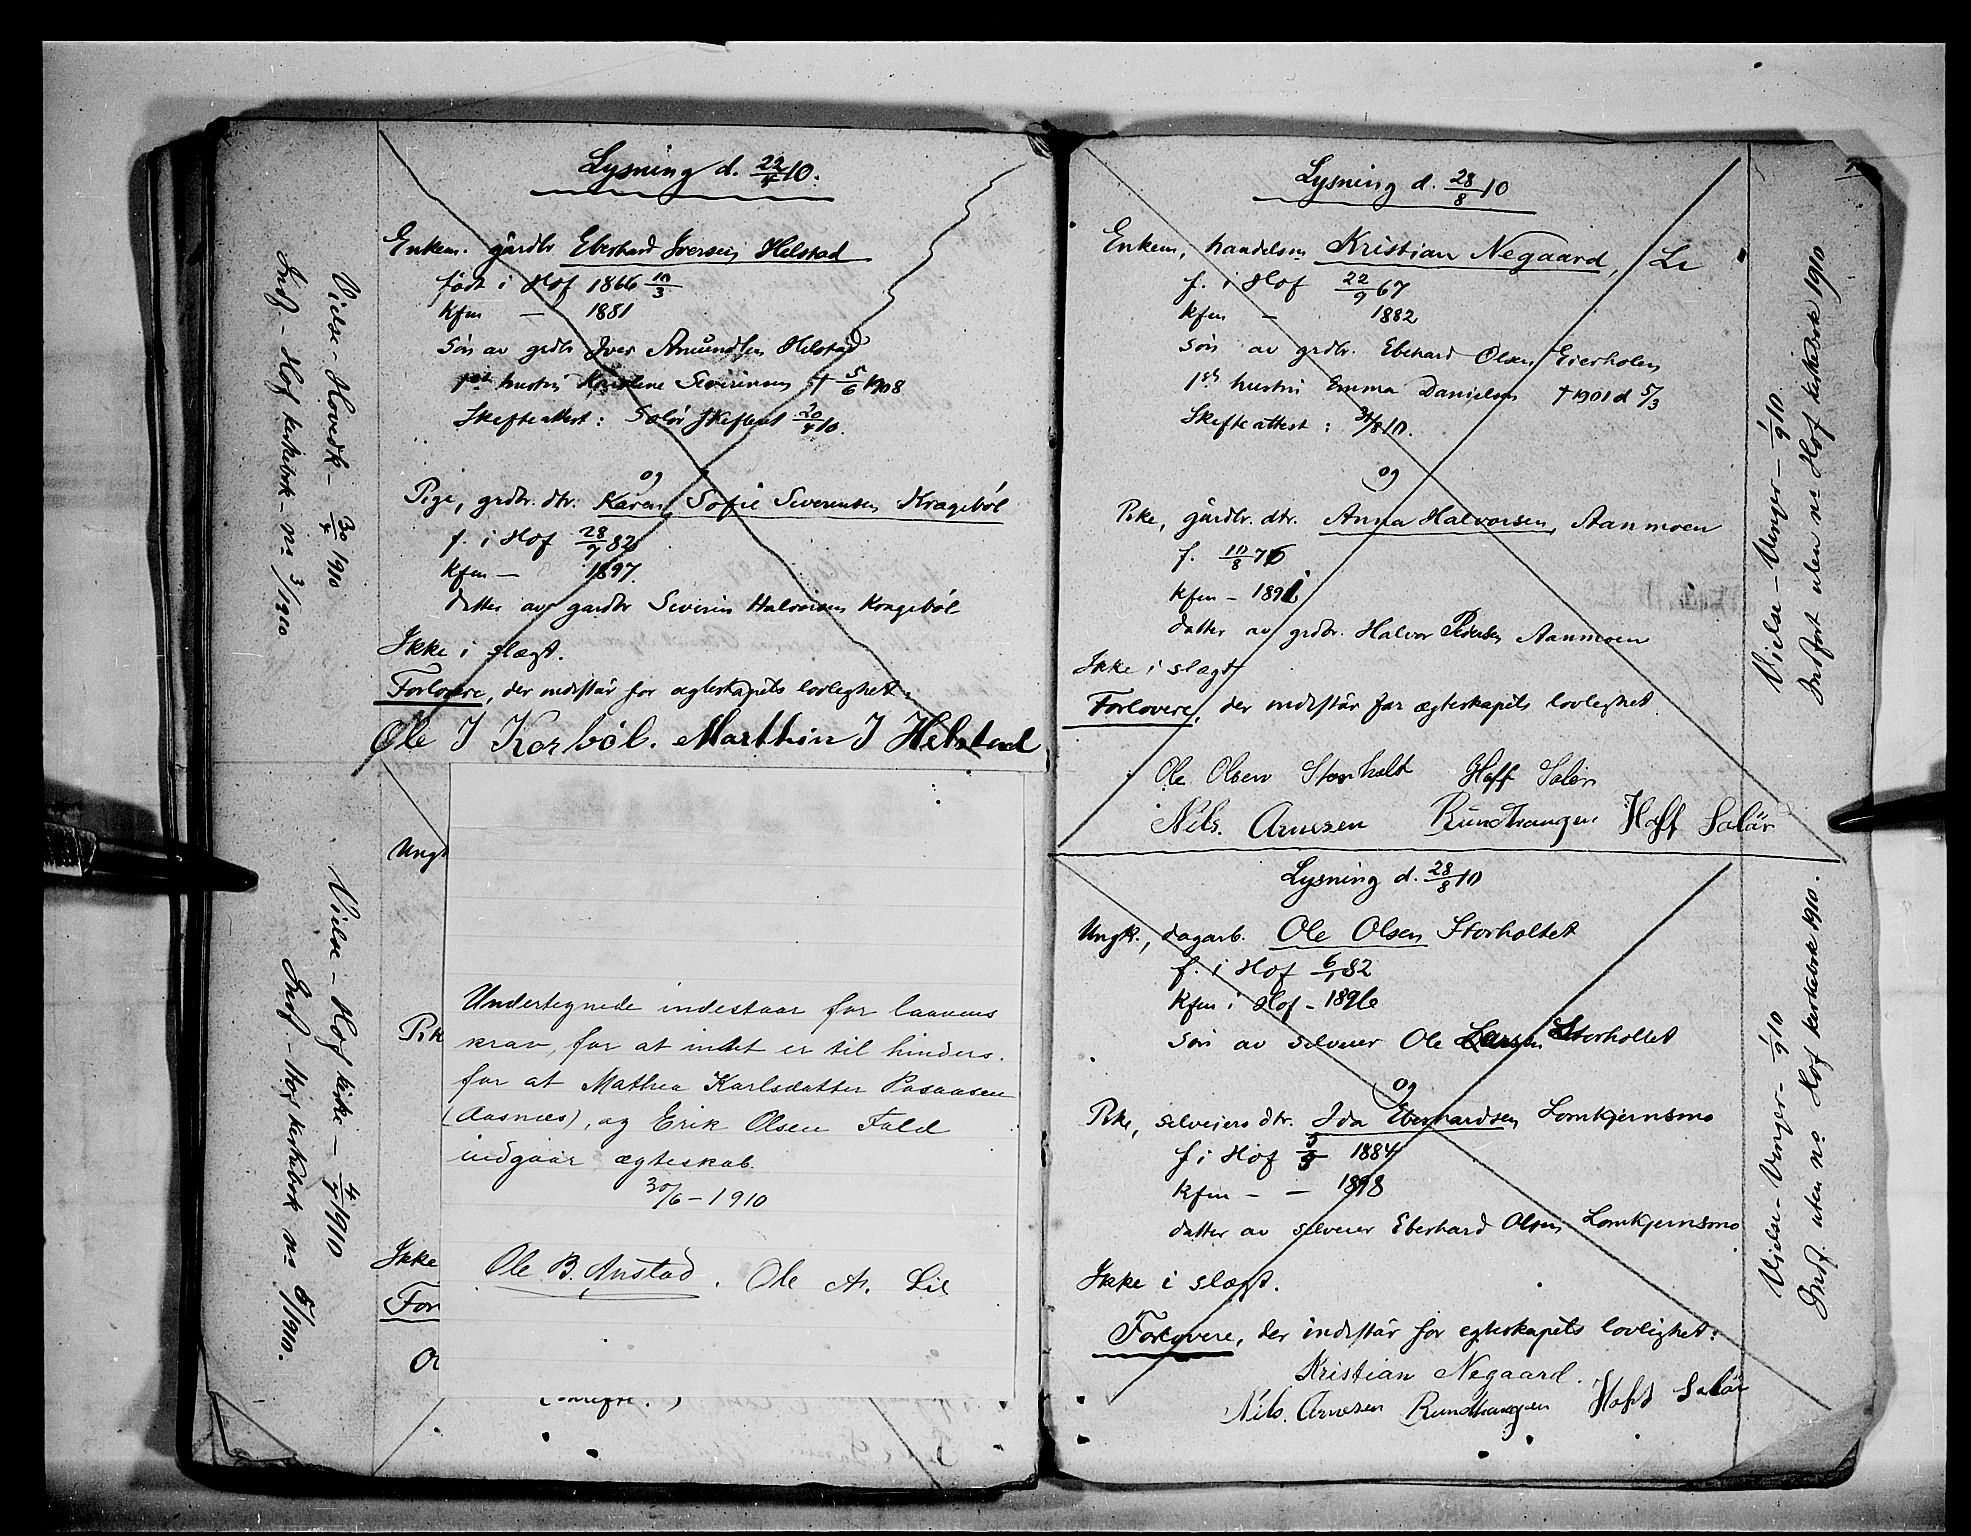 Lysning d. 22/4 10.
Enkem. gårdbr Eberhard Iversen Helstad
født i Hof 1866 10/3
kfm — 1881
Søn av grdbr Iver Amundsen Helstad
1st hustru Karoline Severinsen † 5/6 1908
Skifteattest: Solør Skifteret 20/4 10.
og
Pige, grdbr. dtr. Karen Sofie Severinsen Kragebøl
f. i Hof 28/7 82
kfm — 1897.
datter av gardbr Severin Halvorsen Kragebøl
Ikke i slægt.
Forlovere, der indestår for egteskapets lovlighet:
Ole I Korbøl. Marthin I Helstad
Vielse – Hovedk – 30/4 1910
Indf. – Hof kirkebok – no 3/1910
Ungk
Pik
Ikke
For
Undertegnede indestaar for laavens
krav, for at intet er til hinders.
for at Mathea Karlsdatter Posaasen
(Aasnæs), og Erik Olsen Fald
indgaar ægteskab.
30/6 – 1910
Ole B. Anstad. Ole A. Lie
Vielse – Hof kirke – 4/9 1910
Indf – Hof kirkebok no 5/1910.
Lysning d. 28/8 10
Enkem, handelsm Kristian Negaard, Li
f. i Hof 22/9 67
kfm – 1882
Søn av grdbr. Eberhard Olsen Eierholen
1st hustru Emma Danielsen † 1901 d 5/3
Skifteattest: 31/8 10.
og
Pike, gårdbr. dtr. Anna Halvorsen, Aanmoen
f. 10/8 76
kfm – 1891
datter av grdbr. Halvor Pedersen Aanmoen
Ikke i slægt
Forlovere, der indestår for ægteskapets lovlighet.
Ole Olsen Storholt Hoff Solør
Nils. Arnesen Rundhaugen Hoff Solør
Vielse – Vinger – 1/9 10
Indført uten no Hof kirkebok 1910
Lysning d. 28/8 10
Ungk., dagarb. Ole Olsen Storholtet
f. i Hof 6/1 82
kfm i Hof – 1896
Søn av selveier Ole Larsen Storholtet
og
Pike, selveiers dtr. Ida Eberhardsen Lomkjernsmo
f i Hof 5/9 1884
kfm – – 1898
datter av selveier Eberhard Olsen Lomkjernsmo
Ikke i slægt.
Forlovere, der indestår for egteskapets lovlighet:
Kristian Negaard.
Nils. Arnesen Rundhaugen Hoff Solør
Vielse – Vinger – 1/9 10
Indf. uten no Hof kirkebok 1910.